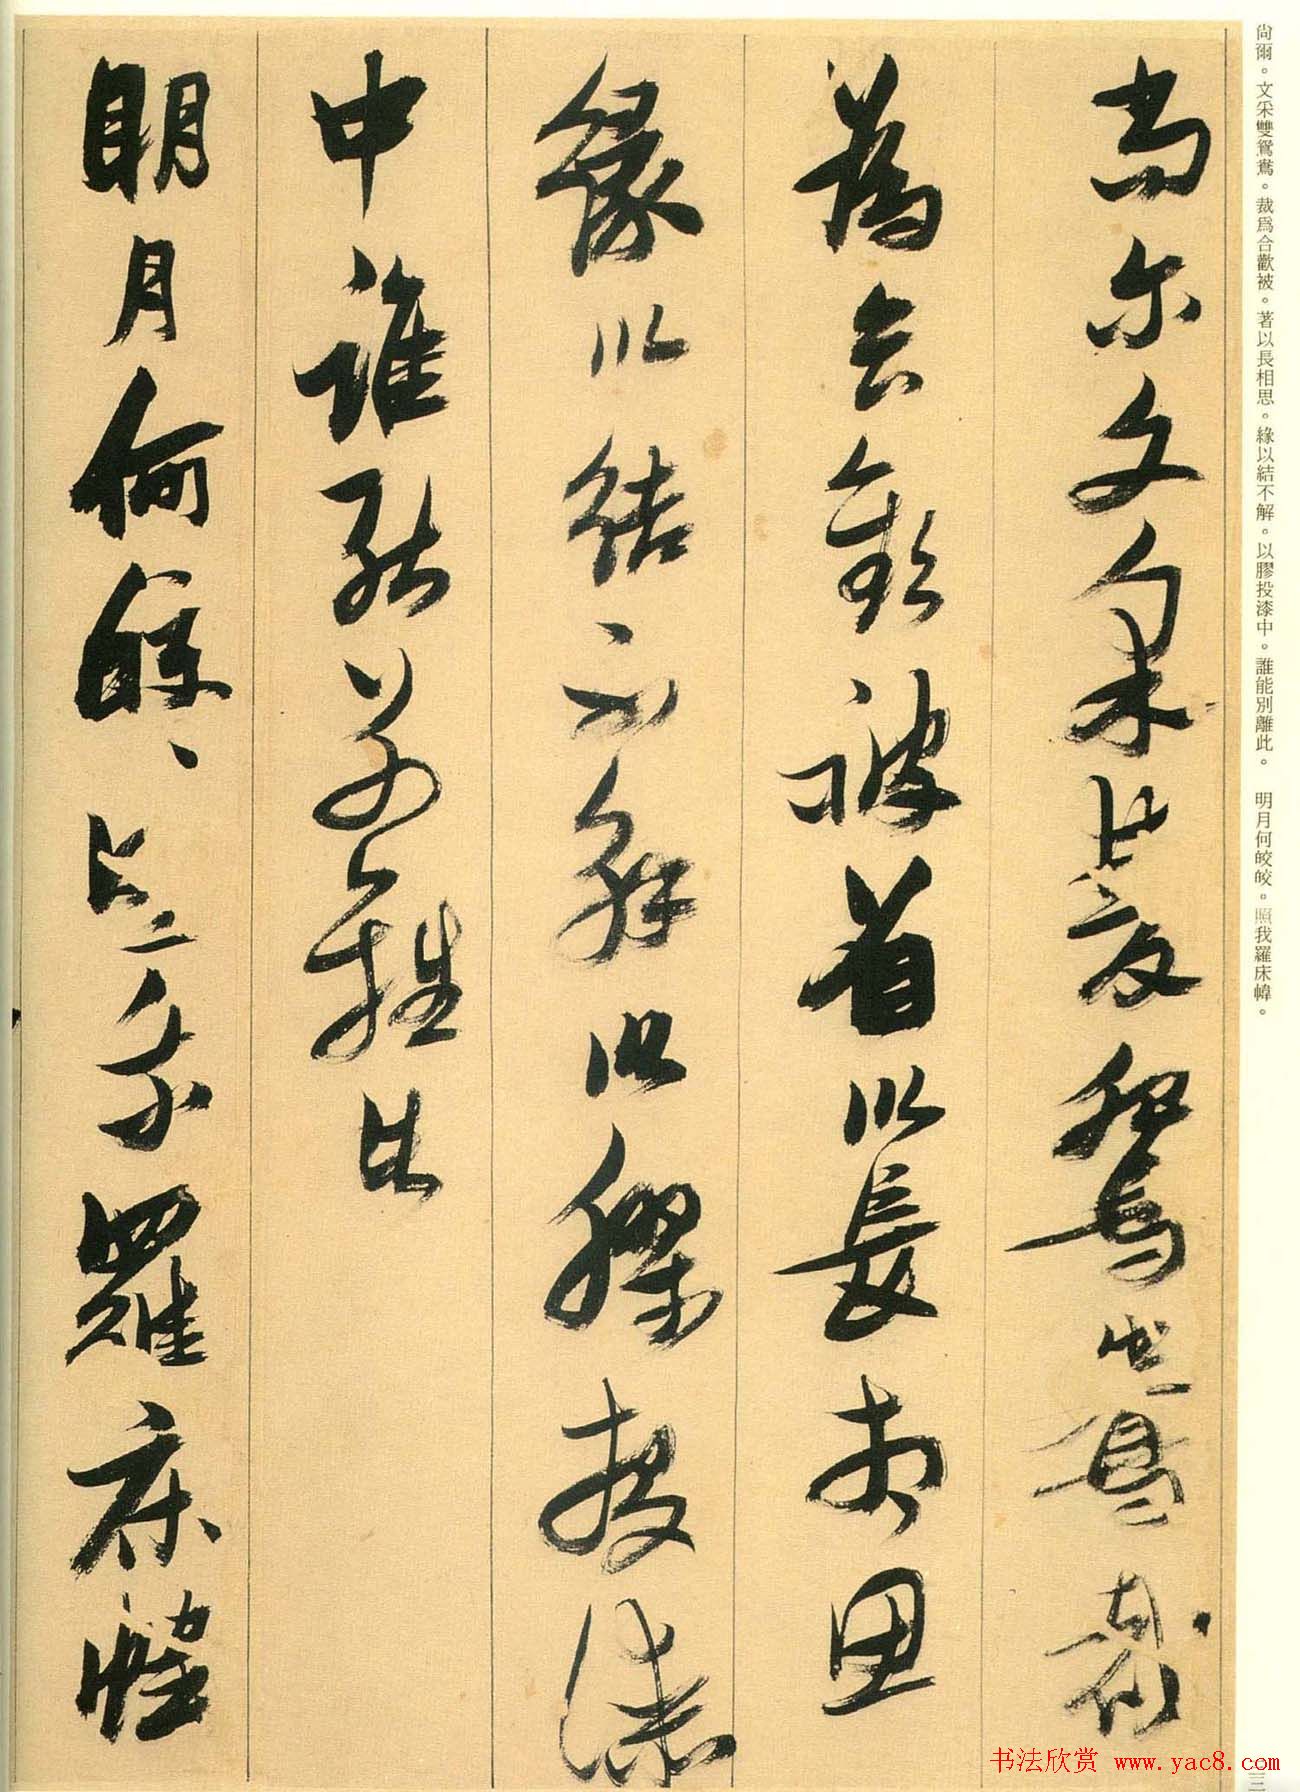 尚爾。文采雙鴛鴦。裁爲合歡被。著以長相思。緣以結不解。以膠投漆中。誰能別離此。　明月何皎皎。照我羅床幃。
尚尔文采雙鴛鴦裁
為合歡被著以長相思
緣以結不解以膠投漆
中誰能別離此
明月何皎、照我羅床幃
书法欣赏 www.yac8.com